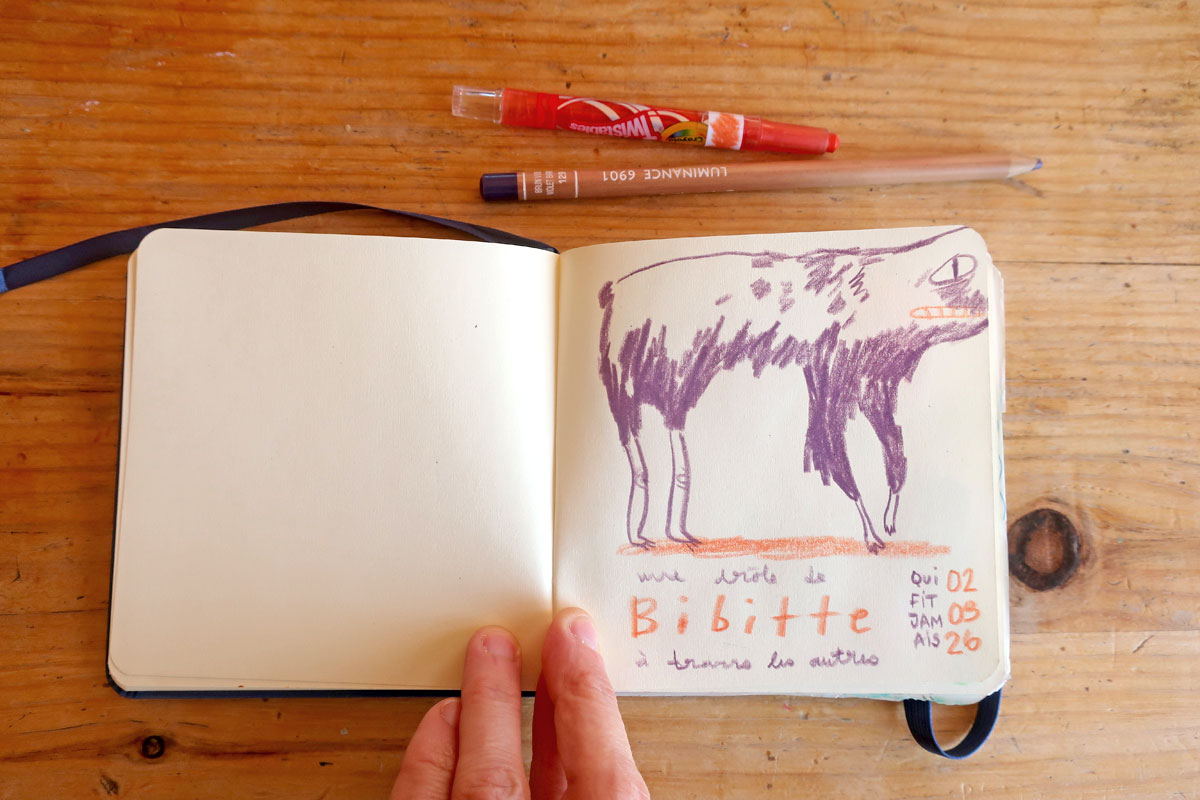 Twistables
Crayola
LUMINANCE 6901
BRUN
VIOLET
129
une drôle de
Bibitte
à travers les autres
Qui
FiT
JAM
AiS
02
03
26